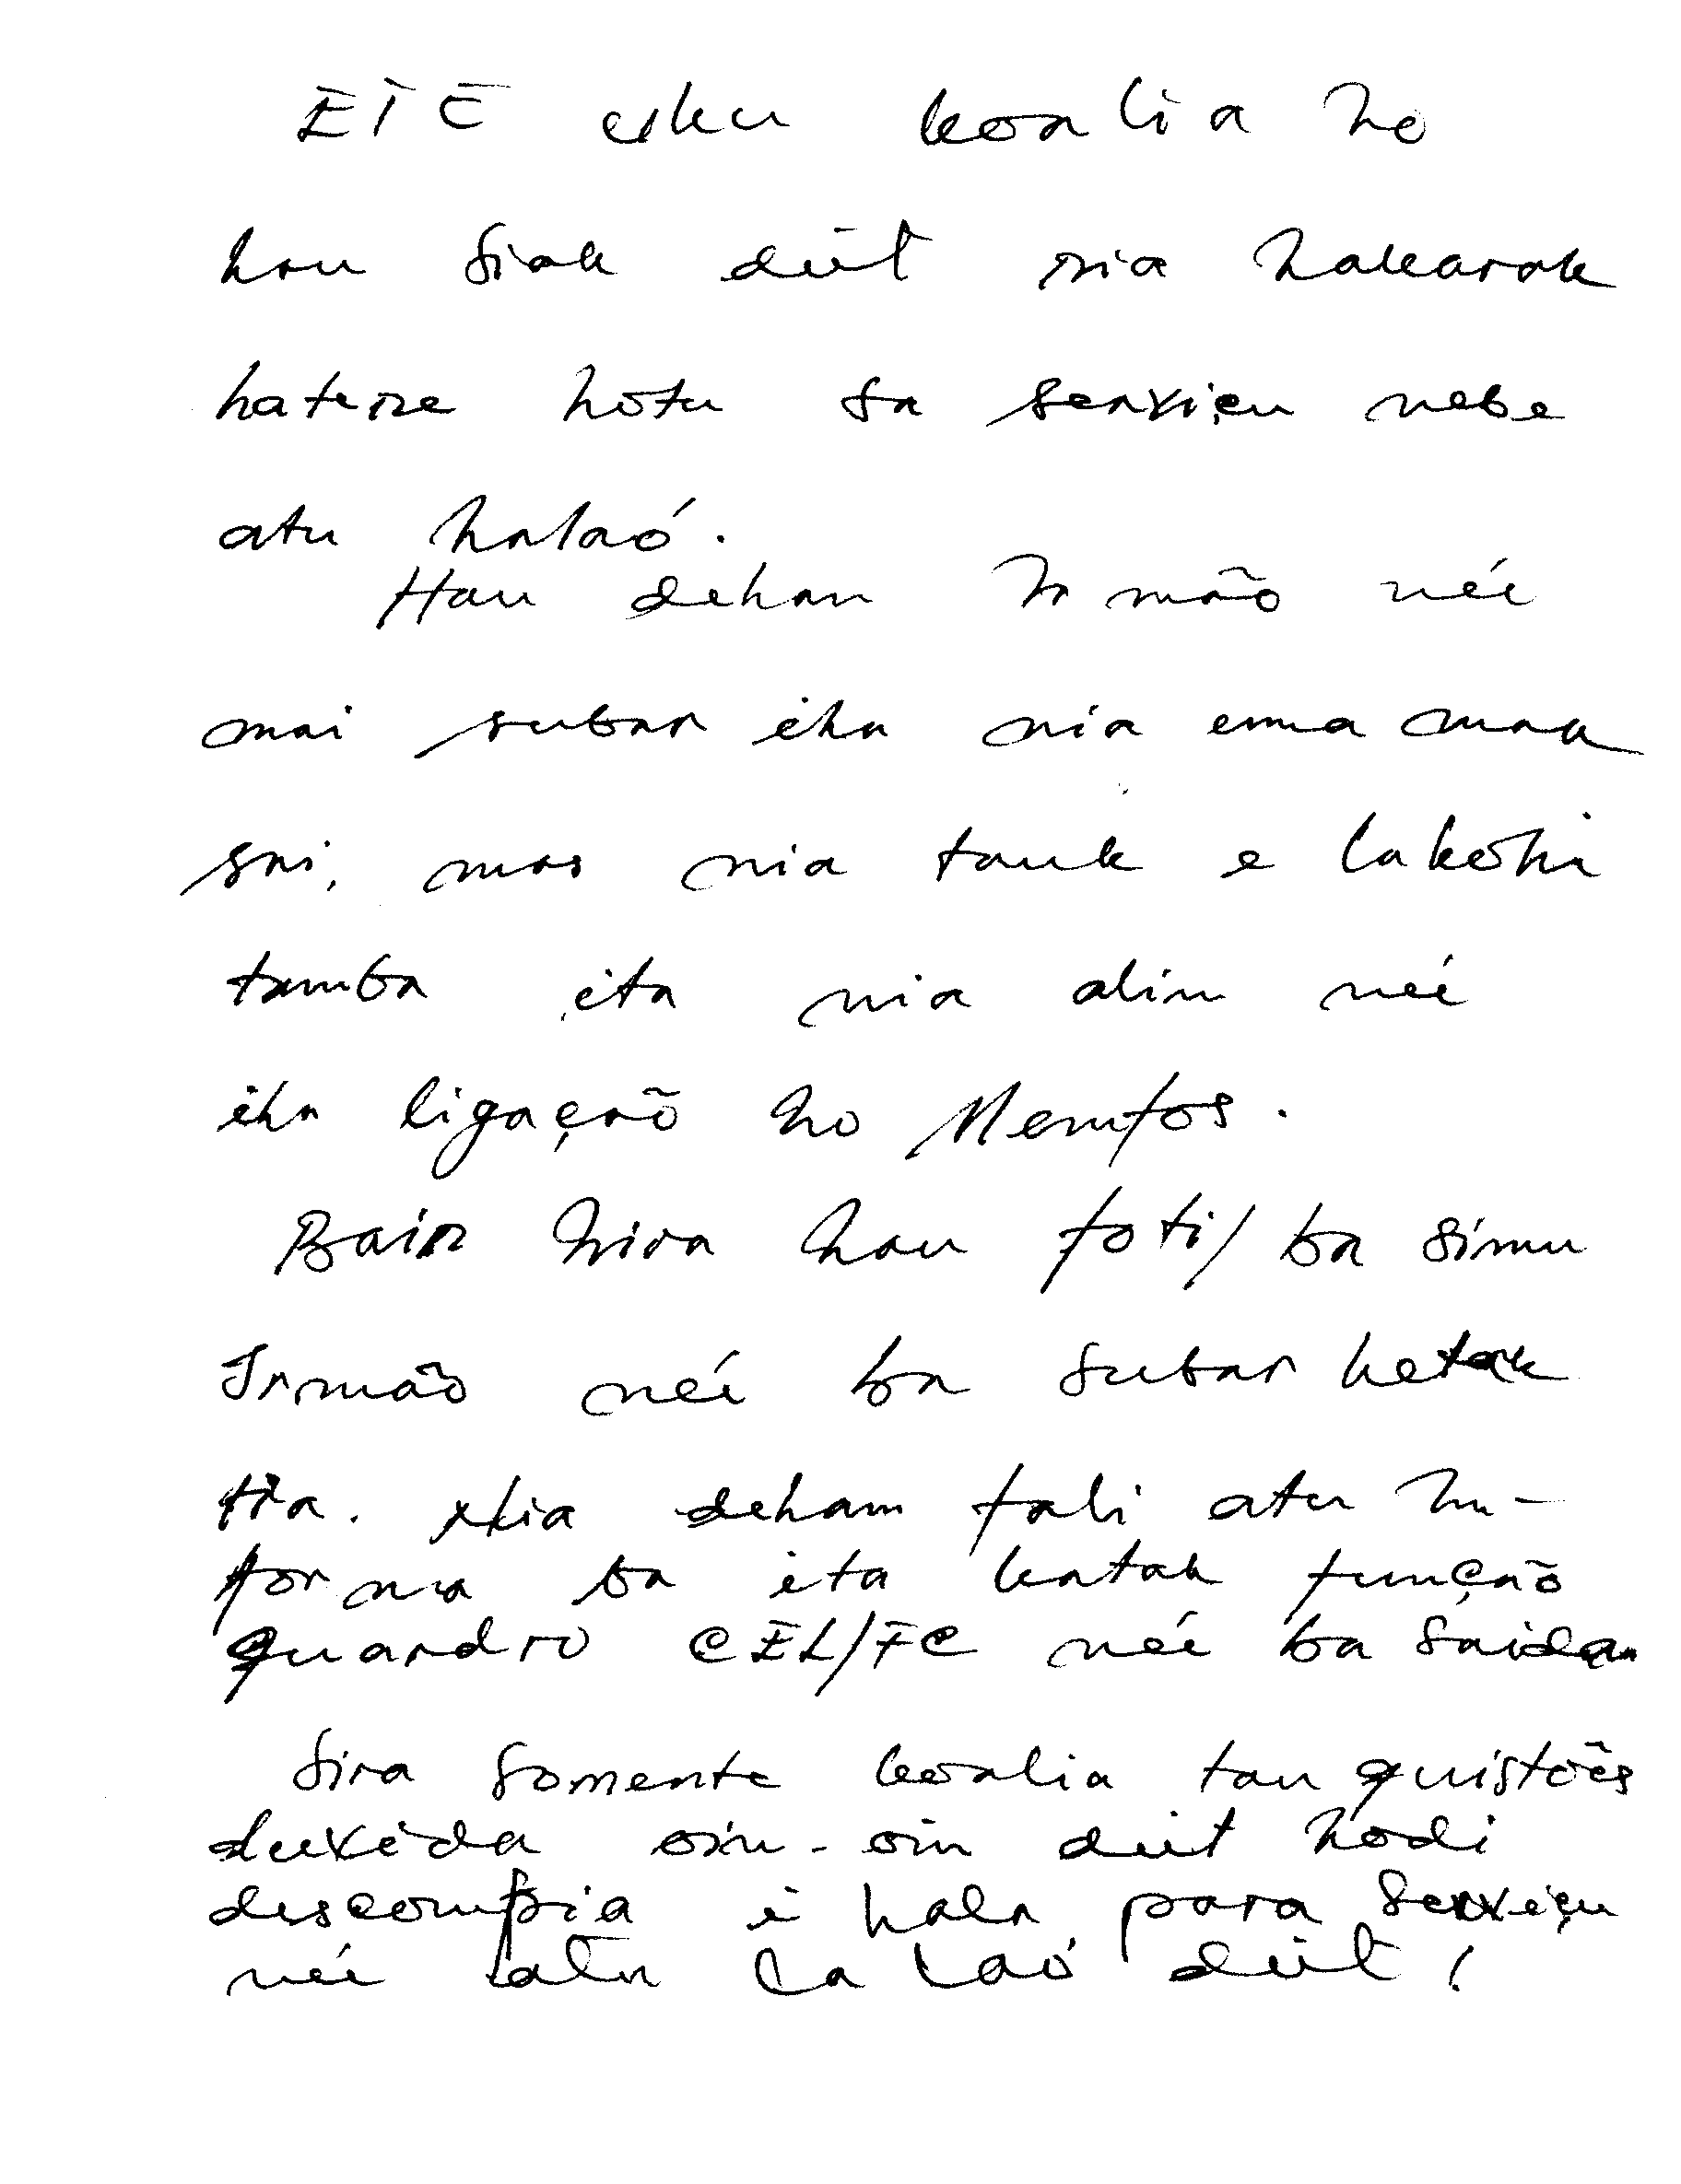 ETE koalia ho
hau siak deit nia hakarak
hatene hotu sa serviçu nebe
atu halaó.
Hau dehan Irmão néé
mai subar iha nia ema mak
sai, mas nia tauk e lakohi
tamba ita nia alin néé
iha ligação ho Nemfos.
Bain hira hau foti/ba simu
Irmão néé ba subar ketak
tia. Nia dehan fali atu in-
forma ba ita katak função
quandro CEL/FC néé ba saida
Sira somente koalia tau quistões
duvida oin-oin deit hodi
descomfia e hala para serviçu
néé atu la laó deit!